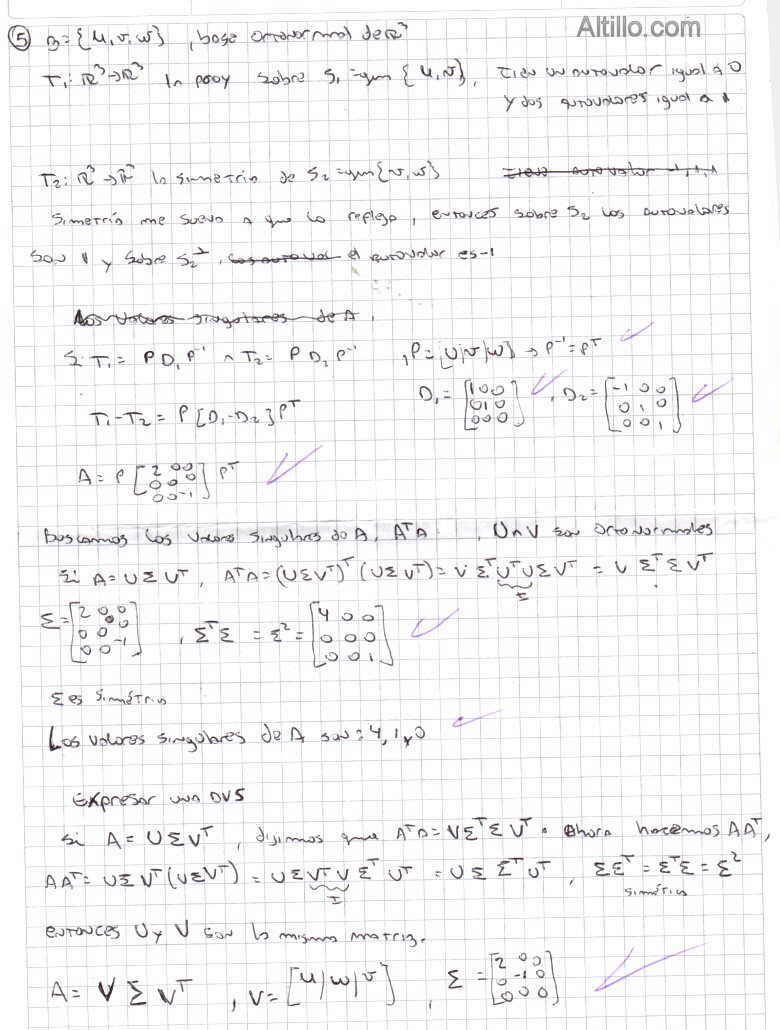 Altillo.com
⑤ B={u,v,w} , base ortonormal de ℝ³
T₁: ℝ³→ℝ³ la proy sobre S₁=gen{u,v}, tiene un autovalor igual a 0
y dos autovalores igual a 1
T₂: ℝ³→ℝ³ la simetría de S₂=gen{v,w} tiene autovalor -1,1,1
Simetría me suena a que lo refleja, entonces sobre S₂ los autovalores
son 1 y sobre S₂^⊥, los autoval el autovalor es -1
Los valores singulares de A.
Si T₁= P D₁ P⁻¹ ∧ T₂= P D₂ P⁻¹ , P=[u|v|w] → P⁻¹=Pᵀ
D₁=[1 0 0; 0 1 0; 0 0 0] , D₂=[-1 0 0; 0 1 0; 0 0 1]
T₁-T₂= P[D₁-D₂]Pᵀ
A= P[2 0 0; 0 0 0; 0 0 -1]Pᵀ
buscamos los valores singulares de A, AᵀA , U∧V son ortonormales
Si A=UΣVᵀ, AᵀA=(UΣVᵀ)ᵀ(UΣVᵀ)= VΣᵀUᵀUΣVᵀ = VΣᵀΣVᵀ
I
Σ=[2 0 0; 0 0 0; 0 0 -1] , ΣᵀΣ = Σ² = [4 0 0; 0 0 0; 0 0 1]
Σ es simétrica
Los valores singulares de A son: 4, 1 y 0
Expresar una DVS
Si A=UΣVᵀ, dijimos que AᵀA=VΣᵀΣVᵀ. Ahora hacemos AAᵀ,
AAᵀ= UΣVᵀ(UΣVᵀ) = UΣVᵀVΣᵀUᵀ = UΣΣᵀUᵀ , ΣΣᵀ=ΣᵀΣ=Σ²
I simétrica
entonces U y V son la misma matriz.
A= VΣVᵀ , V=[u|w|v] , Σ=[2 0 0; 0 -1 0; 0 0 0]